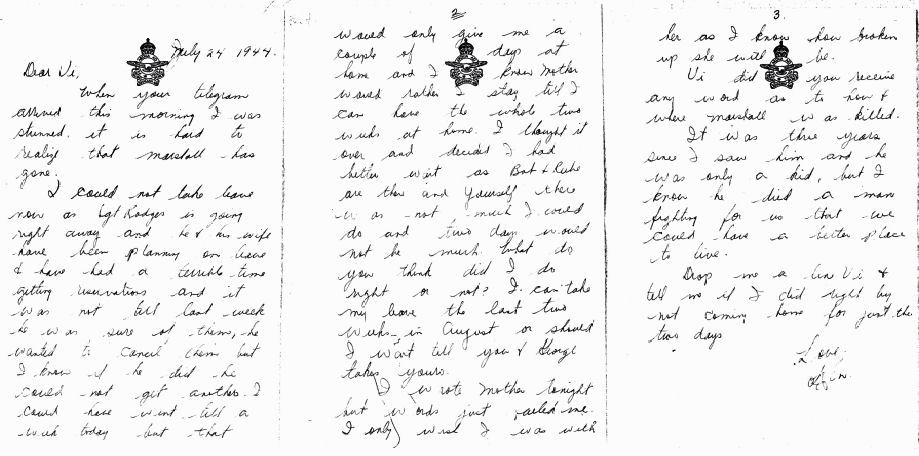 July 24 1944.
Dear Vi,
When your telegram
arrived this morning I was
stunned. it is hard to
realize that marshall has
gone.
I could not take leave
now as Sgt Rodges is going
right away and he & his wife
have been planning on leave
& have had a terrible time
getting reservations and it
was not till last week
he was sure of them, he
wanted to cancil them but
I know if he did he
could not get another. I
could have went till a
week today but that
2
would only give me a
couple of days at
home and I know Mother
would rather I stay till I
can have the whole two
weeks at home. I thought it
over and decided I had
better wait as Bert &
are there and yourself there
was not much I could
do and two days would
not be much. What do
you think did I do
right or not? I can take
my leave the last two
weeks in August or should
I wait till you & George
takes yours.
I wrote Mother tonight
but words just failed me.
I only wish I was with
3.
her as I know how broken
up she will be.
Vi did you receive
any word as to how &
where marshall was killed.
It was three years
since I saw him and he
was only a kid, but I
know he died a man
fighting for us that we
could have a better place
to live.
Drop me a line Vi &
tell me if I did right by
not coming home for just the
two days
Love,